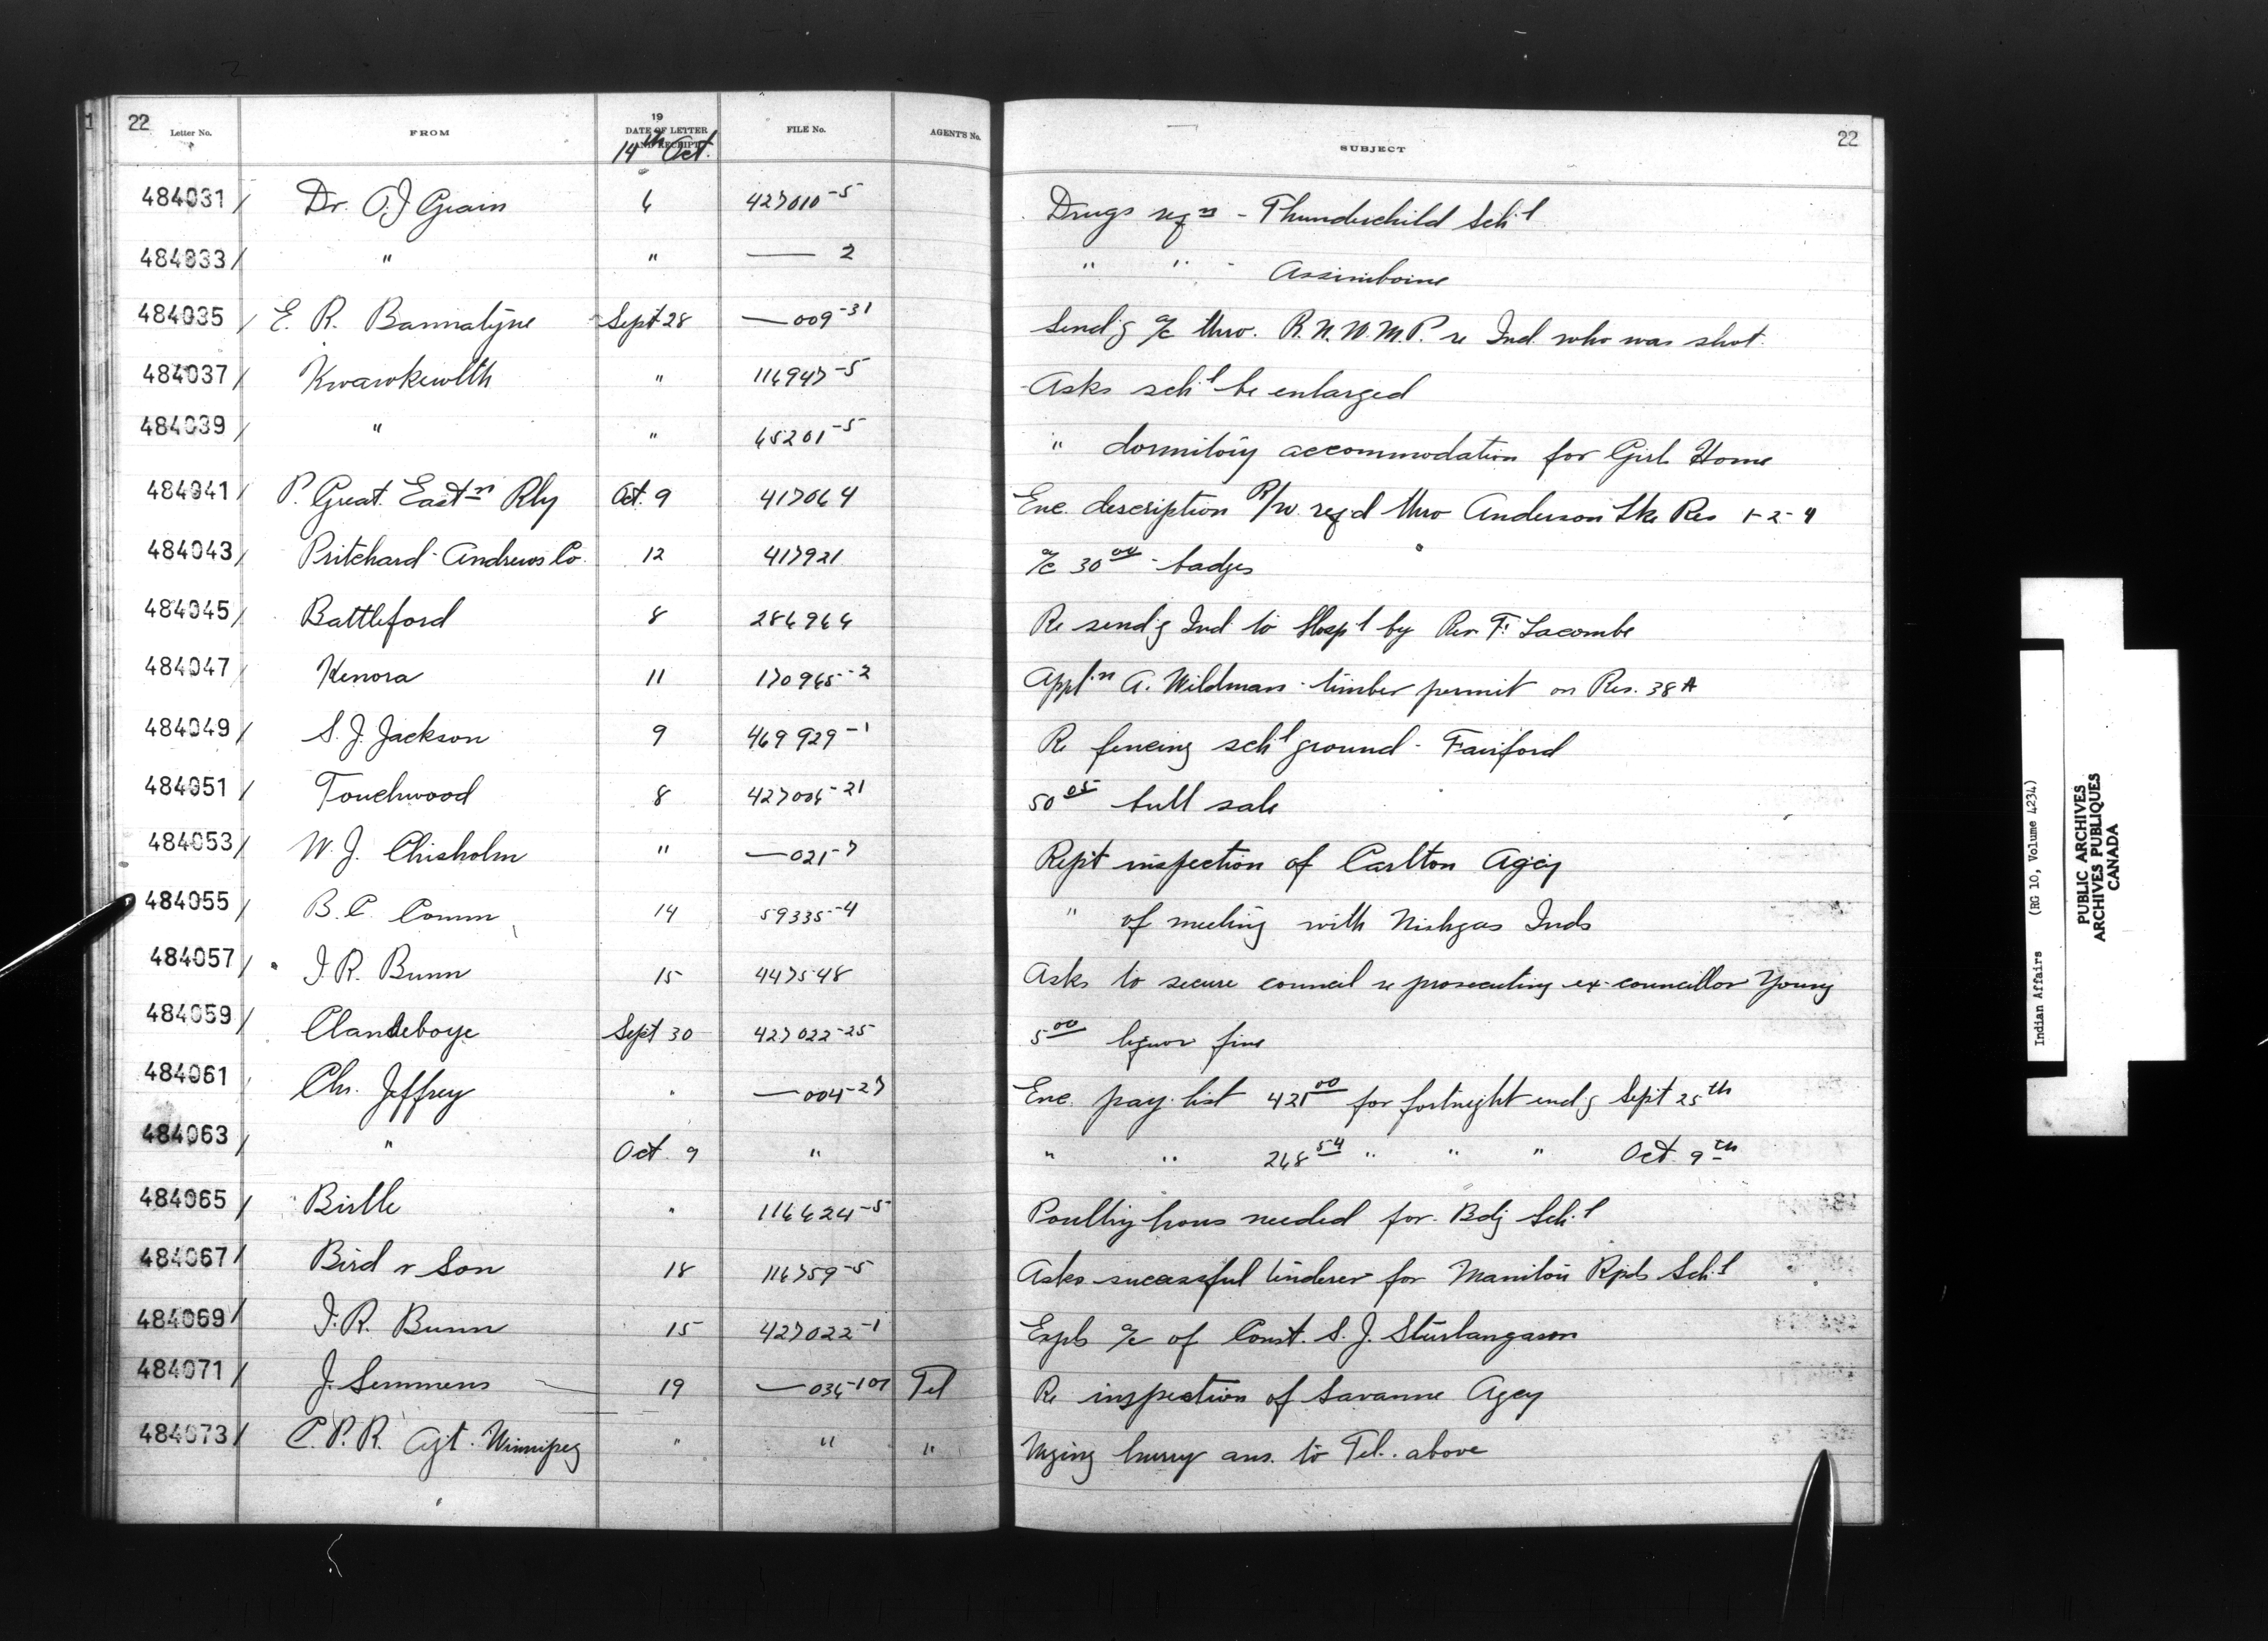 22
Letter No. FROM 19 DATE OF LETTER AND RECEIPT FILE No. AGENT'S No. SUBJECT 22
14th Oct.
484031/ Dr. O.J Grain 6 427010-5 Drugs reqn - Thunderchild Sch'l
484033/ " " —— 2 " " - Assiniboine
484035/ E. R. Bannatyne Sept 28 —009-31 Send'g a/c thro. R.N.W.M.P. re Ind. who was shot.
484037/ Kwawkewlth " 116947-5 Asks sch'l be enlarged
484039/ " " 65201-5 " dormitory accommodation for Girls Home
484041/ P. Great Eastn Rly Oct. 9 417064 Enc. description R/w. req'd thro Anderson Lke Res 1-2-4
484043/ Pritchard-Andrews Co. 12 417921 a/c 30 00 - badges
484045/ Battleford 8 286966 Re send'g Ind. to Hosp'l by Rev. F. Lacombe
484047/ Kenora 11 170965-2 Appl'n A. Wildman - timber permit on Res. 38A
484049/ S. J. Jackson 9 469929-1 Re fencing sch'l ground - Fairford
484051/ Touchwood 8 427006-21 50 05 bull sale
484053/ W. J. Chisholm " —021-7 Rep't inspection of Carlton Agcy
484055/ B. C. Comm 14 59335-4 " of meeting with Nishgas Inds
484057/ J. R. Bunn 15 447548 Asks to secure council re prosecuting ex-councillor Young
484059/ Clandeboye Sept 30 427022-25 5 00 liquor fine
484061 Chs. Jeffrey " —004-27 Enc. pay-list 421 00 for fortnight end'g Sept 25th
484063/ " Oct. 9 " " " 268 54 " " " Oct. 9th
484065/ Birtle " 116624-5 Poultry hous needed for Bdg Sch'l
484067/ Bird & Son 18 116759-5 Asks successful tenderer for Manitou Rpds Sch'l
484069/ J. R. Bunn 15 427022-1 Expls a/c of Const. S. J. Sturlangason
484071/ J. Semmens 19 —036-101 Tel Re inspection of Savanne Agcy
484073/ C. P. R. Agt. Winnipeg " " " Urging hurry ans. to Tel. above
Indian Affairs (RG 10, Volume 4234)
PUBLIC ARCHIVES
ARCHIVES PUBLIQUES
CANADA